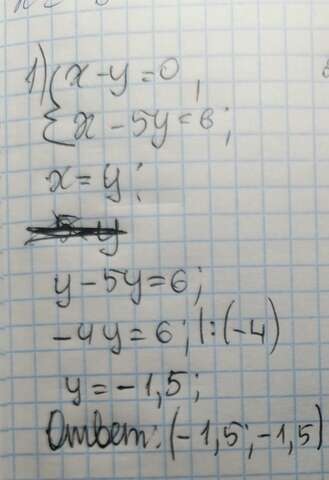 1) { x - y = 0,
x - 5y = 6;
x = y;
y - 5y = 6;
-4y = 6; |:(-4)
y = -1,5;
Ответ: (-1,5; -1,5)